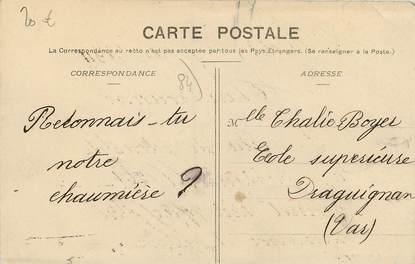 20 €
CARTE POSTALE
La Correspondance au recto n'est pas acceptée par tous les Pays Etrangers. (Se renseigner à la Poste.)
CORRESPONDANCE
84)
Reconnais-tu
notre
chaumière ?
ADRESSE
Melle Thalie Boyer
Ecole supérieure
Draguignan
(Var)